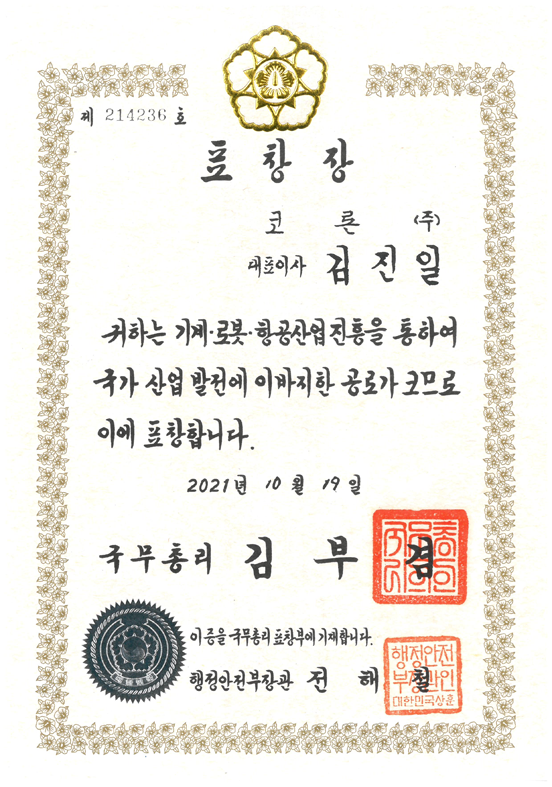 제 214236 호
표 창 장
코 론 (주)
대표이사 김 진 일
귀하는 기계·로봇·항공산업 진흥을 통하여
국가 산업 발전에 이바지한 공로가 크므로
이에 표창합니다.
2021년 10월 19일
국무총리 김 부 겸
이 증을 국무총리 표창부에 기재합니다.
행정안전부장관 전 해 철
행정안전
부장관인
대한민국상훈